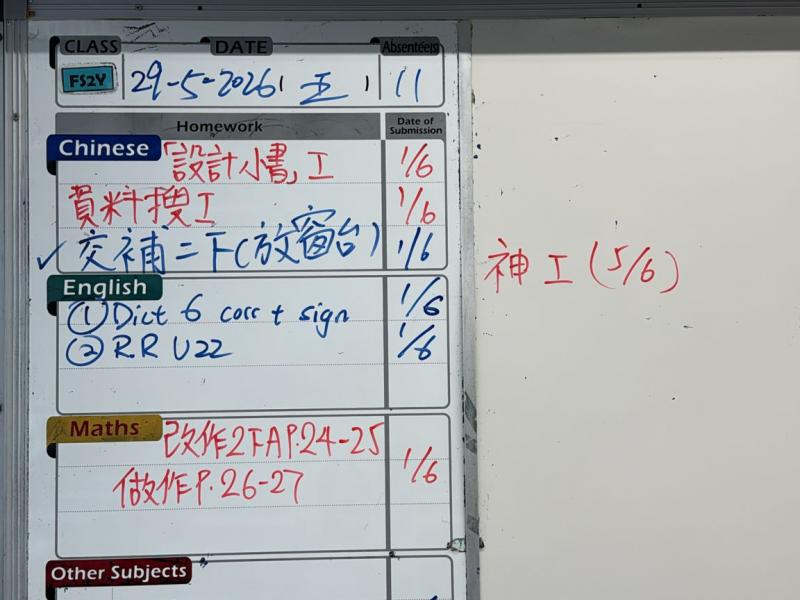 CLASS DATE Absentee(s)
FS2Y 29-5-2026 ( 五 ) 11
Homework Date of Submission
Chinese 「設計小書」工 1/6
資料搜工 1/6
✓ 交補二下(放窗台) 1/6
English
① Dict 6 corr + sign 1/6
② R.R U22 1/6
Maths 改作2下A P.24-25
做作P.26-27 1/6
Other Subjects
神工(5/6)